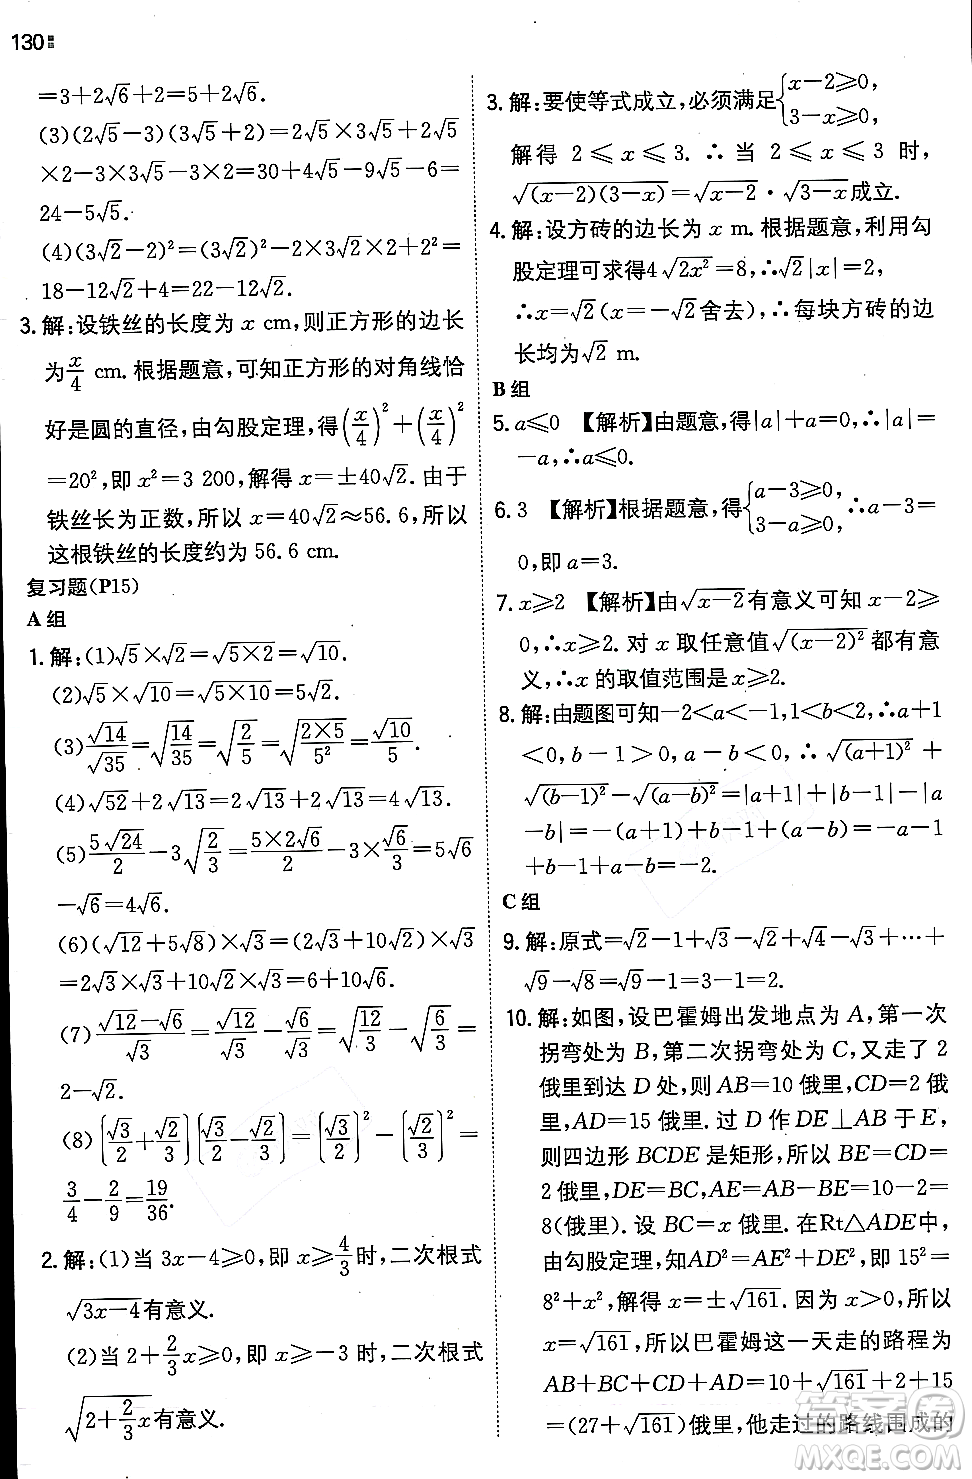 130
=3+2√6+2=5+2√6.
(3)(2√5-3)(3√5+2)=2√5×3√5+2√5
×2-3×3√5-3×2=30+4√5-9√5-6=
24-5√5.
(4)(3√2-2)²=(3√2)²-2×3√2×2+2²=
18-12√2+4=22-12√2.
3.解:设铁丝的长度为 x cm,则正方形的边长
为x/4 cm.根据题意,可知正方形的对角线恰
好是圆的直径,由勾股定理,得(x/4)²+(x/4)²
=20²,即 x²=3 200,解得 x=±40√2.由于
铁丝长为正数,所以 x=40√2≈56.6,所以
这根铁丝的长度约为 56.6 cm.
复习题(P15)
A 组
1.解:(1)√5×√2=√(5×2)=√10.
(2)√5×√10=√(5×10)=5√2.
(3)√14/√35=√(14/35)=√(2/5)=√(2×5/5²)=√10/5.
(4)√52+2√13=2√13+2√13=4√13.
(5)5√24/2-3√(2/3)=5×2√6/2-3×√6/3=5√6
-√6=4√6.
(6)(√12+5√8)×√3=(2√3+10√2)×√3
=2√3×√3+10√2×√3=6+10√6.
(7)(√12-√6)/√3=√12/√3-√6/√3=√(12/3)-√(6/3)=
2-√2.
(8)(√3/2+√2/3)(√3/2-√2/3)=(√3/2)²-(√2/3)²=
3/4-2/9=19/36.
2.解:(1)当 3x-4≥0,即 x≥4/3时,二次根式
√(3x-4)有意义.
(2)当 2+2/3x≥0,即 x≥-3 时,二次根式
√(2+2/3x)有意义.
3.解:要使等式成立,必须满足{x-2≥0,
3-x≥0,
解得 2≤x≤3.∴当 2≤x≤3 时,
√((x-2)(3-x))=√(x-2)·√(3-x)成立.
4.解:设方砖的边长为 x m.根据题意,利用勾
股定理可求得4√(2x²)=8,∴√2|x|=2,
∴x=√2(x=-√2舍去).∴每块方砖的边
长均为√2 m.
B 组
5.a≤0 【解析】由题意,得|a|+a=0,∴|a|=
-a,∴a≤0.
6.3 【解析】根据题意,得{a-3≥0,
3-a≥0,∴a-3=
0,即 a=3.
7.x≥2 【解析】由√(x-2)有意义可知 x-2≥
0,∴x≥2.对 x 取任意值√((x-2)²)都有意
义,∴x 的取值范围是x≥2.
8.解:由题图可知-2<a<-1,1<b<2,∴a+1
<0,b-1>0,a-b<0,∴√((a+1)²)+
√((b-1)²)-√((a-b)²)=|a+1|+|b-1|-|a
-b|=-(a+1)+b-1+(a-b)=-a-1
+b-1+a-b=-2.
C 组
9.解:原式=√2-1+√3-√2+√4-√3+…+
√9-√8=√9-1=3-1=2.
10.解:如图,设巴霍姆出发地点为 A,第一次
拐弯处为 B,第二次拐弯处为 C,又走了 2
俄里到达 D 处,则 AB=10 俄里,CD=2 俄
里,AD=15 俄里.过 D 作 DE⊥AB 于 E,
则四边形 BCDE 是矩形,所以 BE=CD=
2 俄里,DE=BC,AE=AB-BE=10-2=
8(俄里).设 BC=x 俄里.在Rt△ADE中,
由勾股定理,知AD²=AE²+DE²,即 15²=
8²+x²,解得 x=±√161.因为 x>0,所以
x=√161,所以巴霍姆这一天走的路程为
AB+BC+CD+AD=10+√161+2+15
=(27+√161)俄里,他走过的路线围成的
答案圈
MXQE.COM